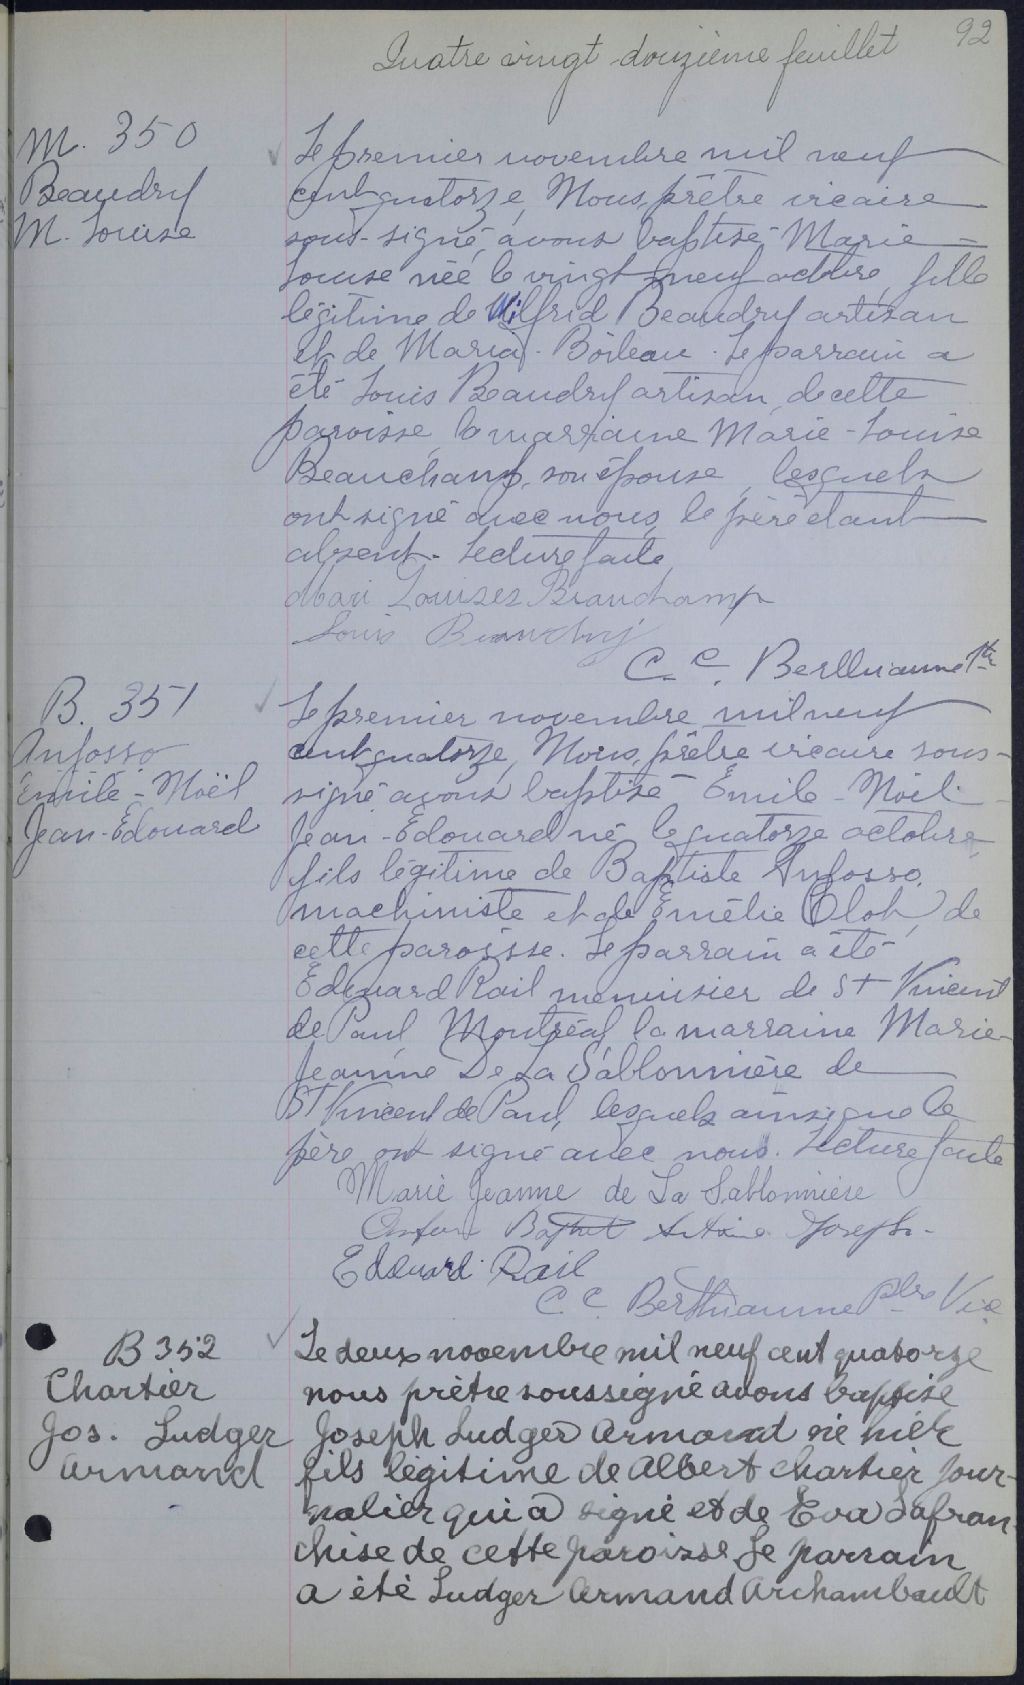 92
Quatre vingt douzième feuillet
M. 350
Beaudry
M. Louise
Le premier novembre mil neuf
cent quatorze, Nous, prêtre vicaire
sous-signé, avons baptisé Marie-
Louise née le vingt neuf octobre, fille
légitime de Wilfrid Beaudry artisan
et de Maria Boileau. Le parrain a
été Louis Beaudry artisan, de cette
paroisse, la marraine Marie-Louise
Beauchamp, son épouse, lesquels
ont signé avec nous, le père étant
absent. Lecture faite
Mari Louises Beauchamp
Louis Beaudry
C. C. Berthiaume Ptre
B. 351
Anfosso
Émile-Noël
Jean-Édouard
Le premier novembre mil neuf
cent quatorze, Nous, prêtre vicaire sous-
signé avons baptisé Émile-Noël-
Jean-Édouard né le quatorze octobre,
fils légitime de Baptiste Anfosso,
machiniste et de Émélie Olof, de
cette paroisse. Le parrain a été
Édouard Rail menuisier de St Vincent
de Paul, Montréal, la marraine Marie-
Jeanne De La Sablonnière de
St Vincent de Paul, lesquels ainsi que le
père ont signé avec nous. Lecture faite
Marie Jeanne de La Sablonnière
Baptist Antoine Joseph
Edouard Rail
C. C. Berthiaume Ptre Vic
B 352
Chartier
Jos. Ludger
Armand
Le deux novembre mil neuf cent quatorze
nous prêtre soussigné avons baptisé
Joseph Ludger Armand né hier
fils légitime de Albert Chartier jour-
nalier qui a signé et de Eva Lafran
chise de cette paroisse Le parrain
a été Ludger Armand Archambault